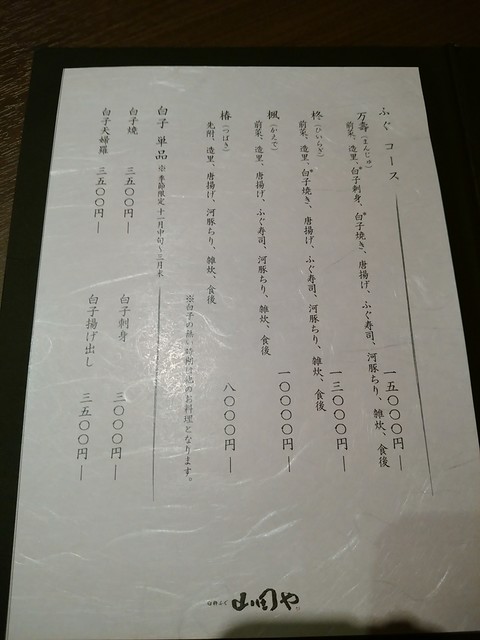 ふぐ コース
万壽（まんじゅ） 一五〇〇〇円
前菜、造里、白子刺身、白子焼き、唐揚げ、ふぐ寿司、河豚ちり、雑炊、食後
柊（ひいらぎ） 一三〇〇〇円
前菜、造里、白子焼き、唐揚げ、ふぐ寿司、河豚ちり、雑炊、食後
楓（かえで） 一〇〇〇〇円
前菜、造里、唐揚げ、ふぐ寿司、河豚ちり、雑炊、食後
椿（つばき） 八〇〇〇円
先附、造里、唐揚げ、河豚ちり、雑炊、食後
※白子の無い時期は他のお料理となります。
白子 単品 ※季節限定 十一月中旬〜三月末
白子焼 三五〇〇円
白子刺身 三〇〇〇円
白子天婦羅 三五〇〇円
白子揚げ出し 三五〇〇円